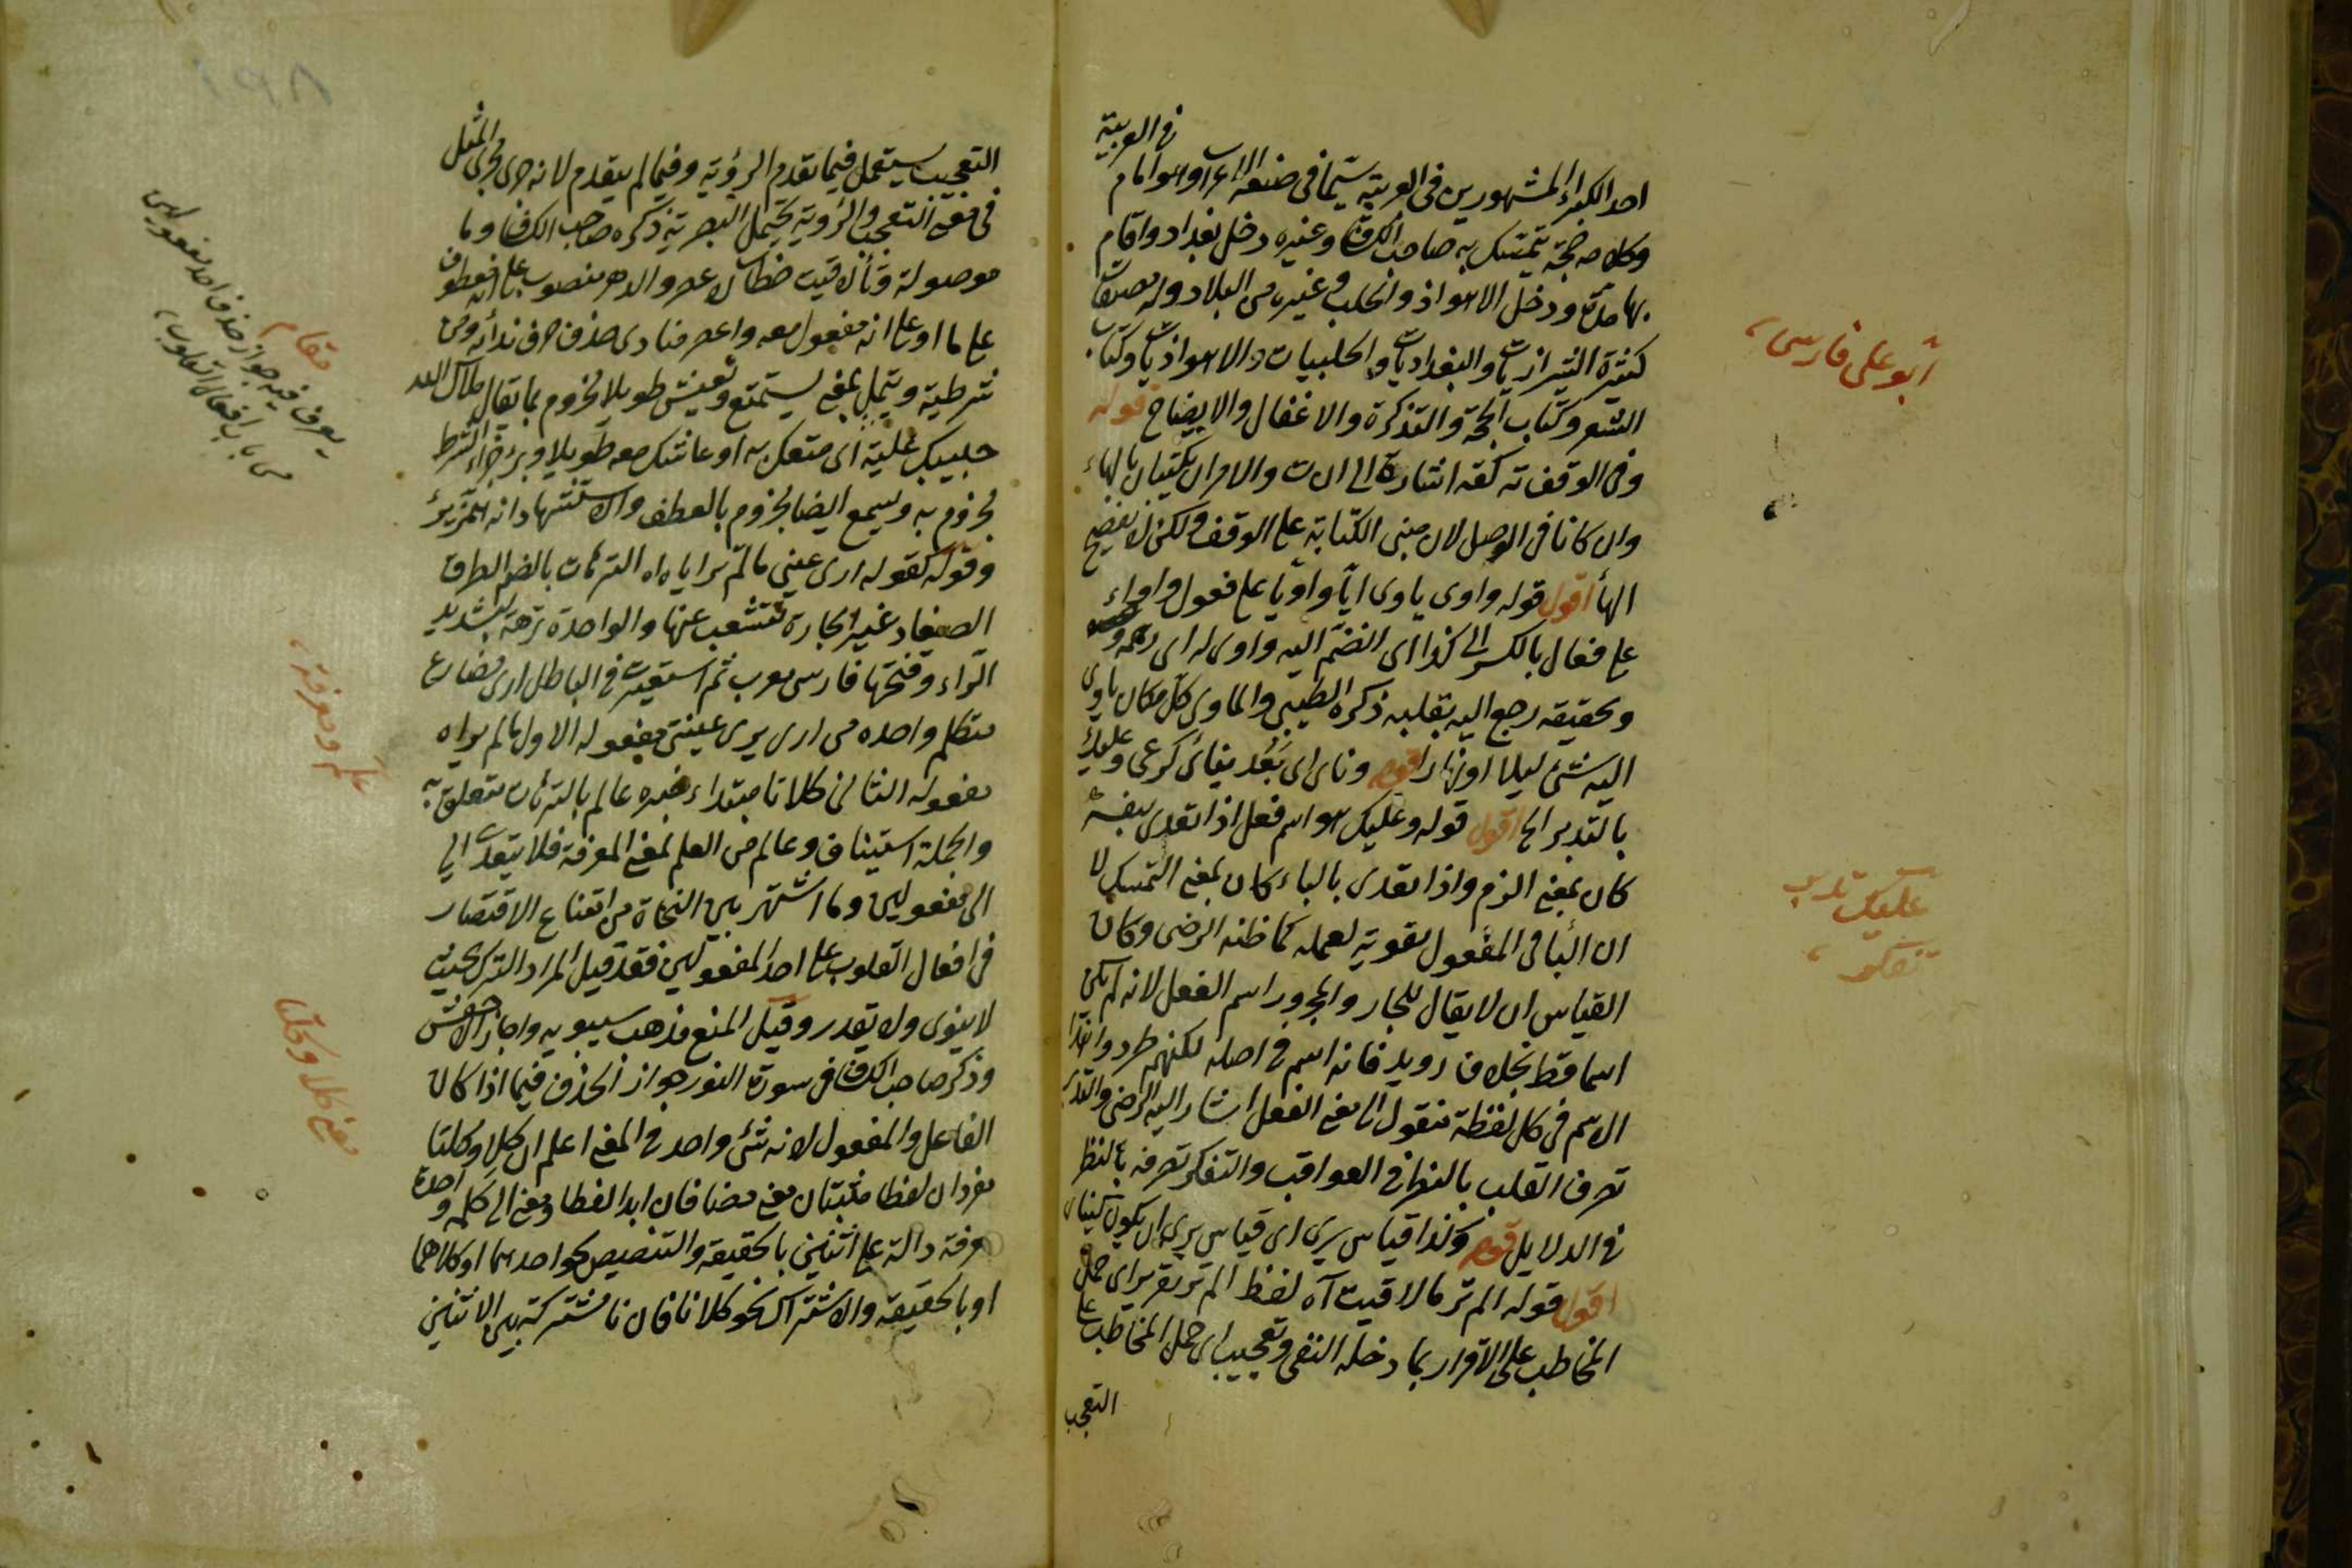 في العربية
احد الكبراء المشهورين فى العربية سيما فى صنعة الاعراب وهو امام
وكلامه حجة يتمسك به صاحب الكشاف وغيره دخل بغداد واقام
بها مدة ودخل الاهواذ والحلب وغيرها من البلاد وله تصنيفات
كثيرة الشيرازيات والبغداديات والحلبيات والاهوازيات وكتاب
الشعر وكتاب الحجة والتذكرة والاغفال والايضاح قوله
وفى الوقف ته كقه اشارة الى ان ت والامران يكتبان بالهاء
وان كانا فى الوصل لان مبنى الكتابة على الوقف ولكن لا يفصح
الهاء اقول قوله واوى ياوى ايا واويا على فعول واواء
على فعال بالكسر الى كذا اى انضم اليه واوى له اى رحمه
وحقيقته رجع اليه بقلبه ذكره الطيبي والماوى كل مكان ياوى
اليه شئ ليلا او نهارا قوله وناى اى بعد ينأى كرعى وعليك
بالتدبر الخ اقول قوله وعليك هو اسم فعل اذا تعدى بنفسه
كان بمعنى الزم واذا تعدى بالباء كان بمعنى التمسك لا
ان الباء فى المفعول تقوية لعمله كما ظنه الرضى وكان
القياس ان لا يقال للجار والمجرور اسم الفعل لانه لم يكن
اسما قط بخلاف رويد فانه اسم فى اصله لكنهم طردوا هذا
الاسم فى كل لفظة منقول الى معنى الفعل اشار اليه الرضى والتدبر
تصرف القلب بالنظر فى العواقب والتفكر تصرفه بالنظر
فى الدلايل قوله وكذا قياس يرى اى قياس يرى ان يكون
اقول قوله الم تر ما لاقيت آه لفظ الم تر تقرير اى حمل
المخاطب على الاقرار بما دخله النفى وتعجيب اى حمل المخاطب على
التعجب
ابو على فارسى
عليك تدبر
تفكر
التعجب يستعمل فيما تقدم الرؤية وفيما لم يتقدم لانه جرى مجرى المثل
فى معنى التعجب والرؤية يحتمل البصرية ذكره صاحب الكشاف وما
موصولة وتاء لاقيت خطاب لاعصر والدهر منصوب على انه عطف
على ما او على انه مفعول معه واعصر منادى حذف حرف ندائه ومن
شرطية ويتمل بمعنى يستمتع ويعيش طويلا مجزوم بما يقال ملاك الله
حبيبك عليه اى متعك به او عاشك معه طويلا وير جزاء الشرط
مجزوم به ويسمع ايضا مجزوم بالعطف والاستشهاد انه
وقوله كقوله ارى عيني مالم ترأياه اه الترهات بالضم الطرق
الصغار غير الجادة تتشعب عنها والواحدة ترهة بتشديد
الراء وفتحها فارسى معرب ثم استعير فى الباطل ارى مضارع
متكلم واحده من ارى يرى عيني مفعوله الاول مالم تراه
مفعوله الثانى كلانا مبتداء خبره عالم بالترهات متعلق به
والجملة استيناف وعالم من العلم بمعنى المعرفة فلا يتعدى الى
الى مفعولين وما اشتهر بين النحاة من امتناع الاقتصار
فى افعال القلوب على احد المفعولين فقد قيل المراد الترك بحيث
لا ينوى ولا يقدر وقيل المنع مذهب سيبويه واجاز الاخفش
وذكر صاحب الكشاف فى سورة النور جواز الحذف فيما اذا كان
الفاعل والمفعول لانه شئ واحد فى المعنى اعلم ان كلا وكلتا
مفردان لفظا مثنيتان معنى مضافان ابدا لفظا ومعنى الى كلمة واحدة
معرفة دالة على اثنين بالحقيقة والتنصيص نحو احدهما او كلاهما
او بالحقيقة والاشتراك نحو كلانا فان نا مشتركة بين الاثنين
مقام
يعرف فيه جواز حذف احد مفعولين
من باب افعال القلوب
علم ومعرفة
معنى كلا وكلتا